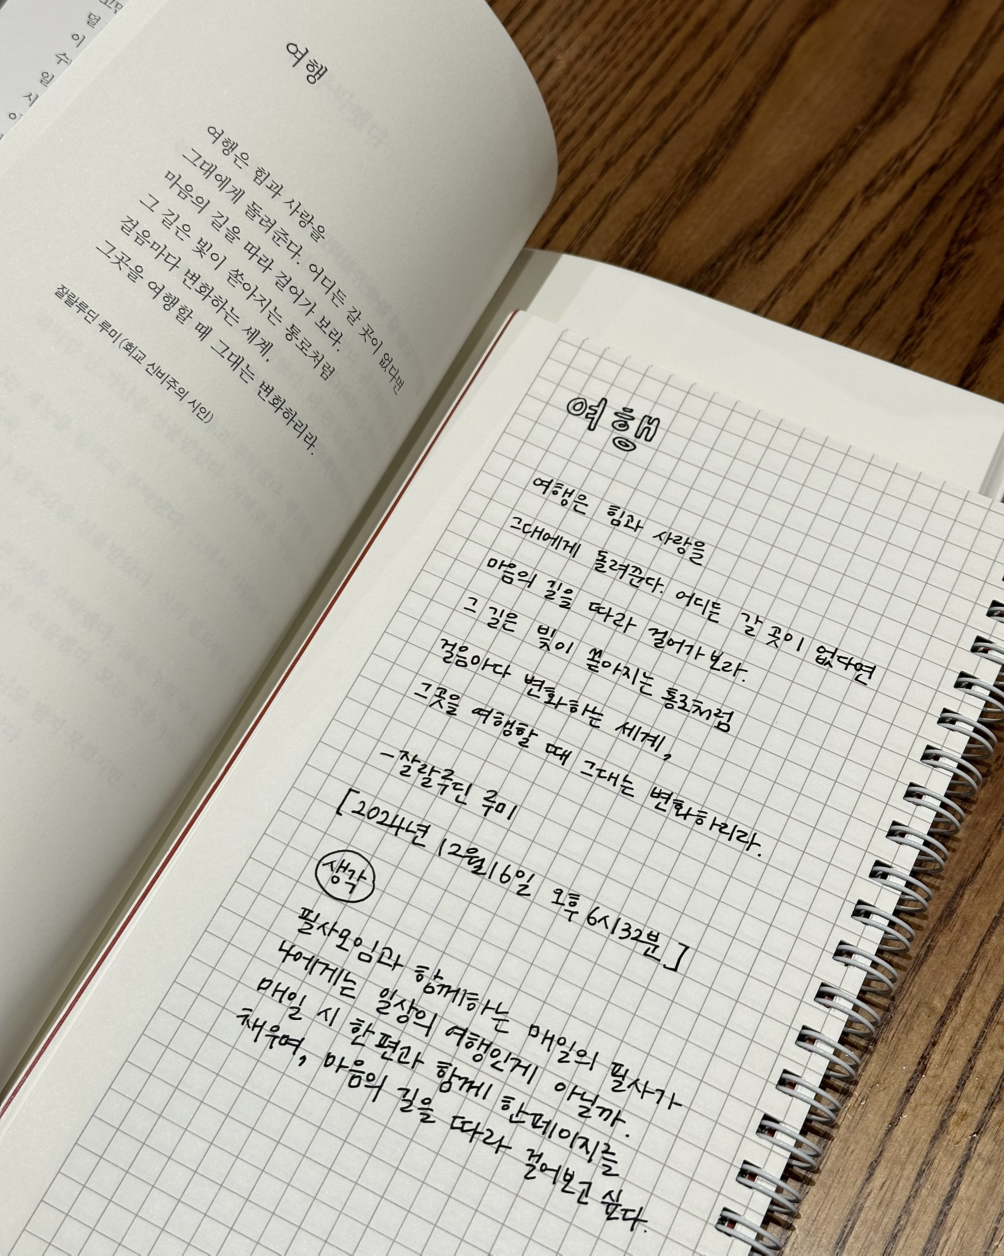 여행
여행은 힘과 사랑을
그대에게 돌려준다. 어디든 갈 곳이 없다면
마음의 길을 따라 걸어가 보라.
그 길은 빛이 쏟아지는 통로처럼
걸음마다 변화하는 세계,
그곳을 여행할 때 그대는 변화하리라.
잘랄루딘 루미(회교 신비주의 시인)
여행
여행은 힘과 사랑을
그대에게 돌려준다. 어디든 갈 곳이 없다면
마음의 길을 따라 걸어가 보라.
그 길은 빛이 쏟아지는 통로처럼
걸음마다 변화하는 세계,
그곳을 여행할 때 그대는 변화하리라.
-잘랄루딘 루미
[2024년 12월 16일 오후 6시 32분]
생각
필사모임과 함께하는 매일의 필사가
나에게는 일상의 여행인게 아닐까.
매일 시 한 편과 함께 한페이지를
채우며, 마음의 길을 따라 걸어보고 싶다.